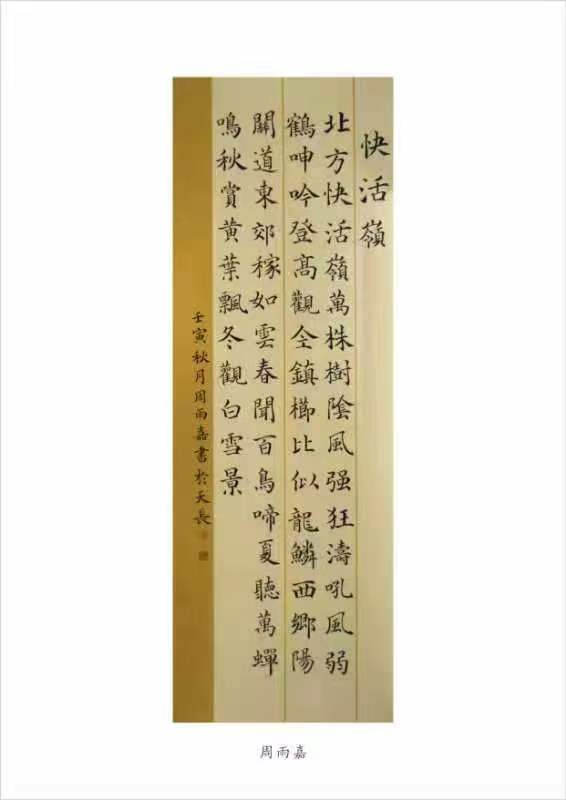 快活嶺
北方快活嶺萬株樹陰風强狂濤吼風弱
鶴呻吟登髙觀仝鎮櫛比似龍鱗西鄉陽
關道東郊稼如雲春聞百鳥啼夏聽萬蟬
鳴秋賞黄葉飄冬觀白雪景
壬寅秋月周雨嘉書於天長
周雨嘉